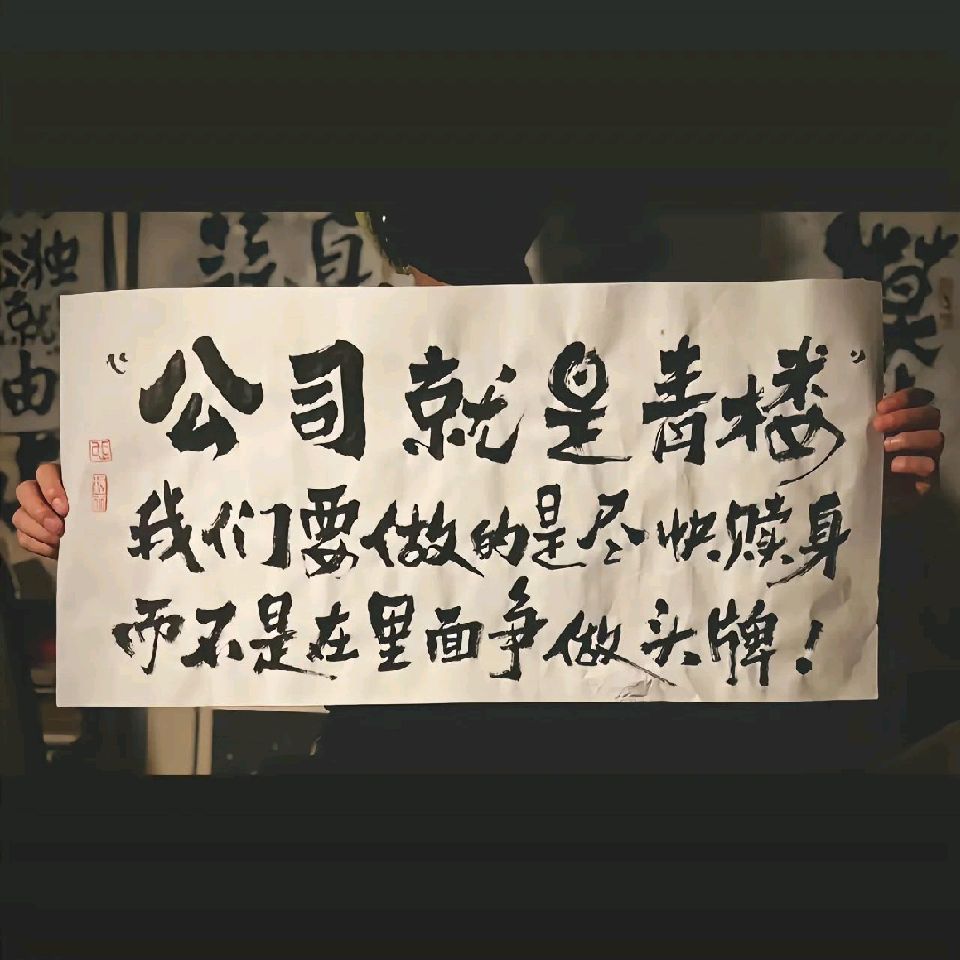 “公司就是青楼”
我们要做的是尽快赎身
而不是在里面争做头牌！
独
就
由